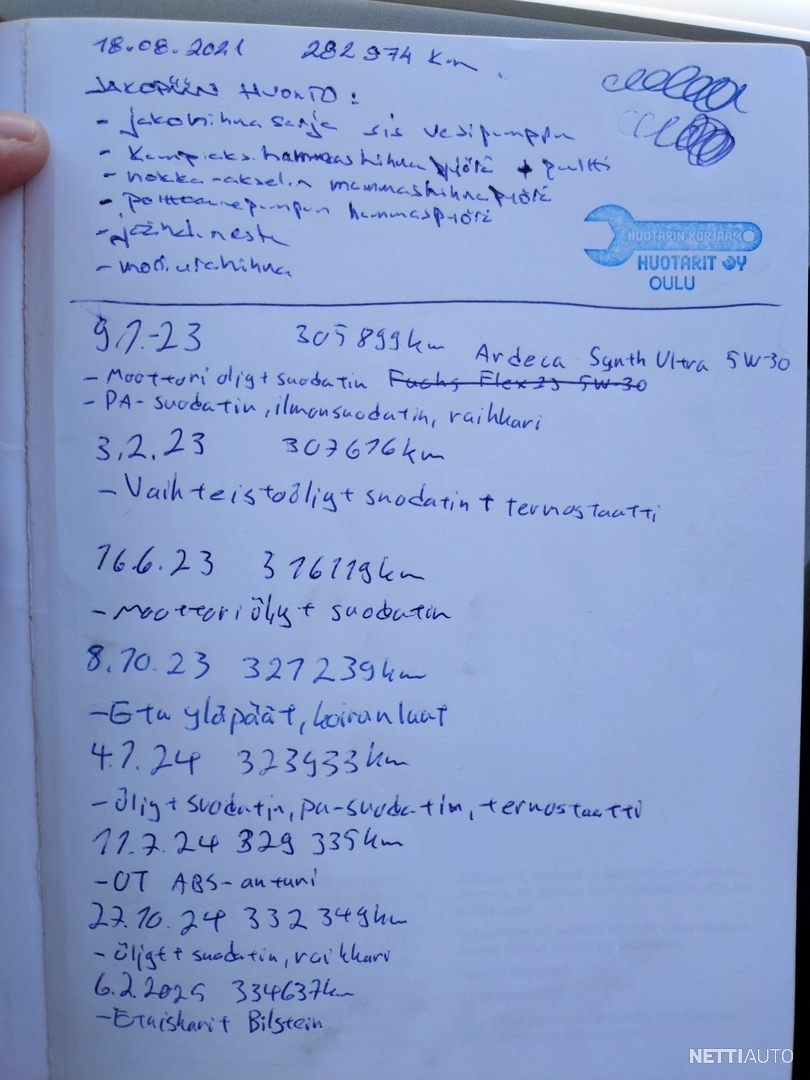 18.08.2021 282 974 km
JAKOPÄÄN HUOLTO:
- jakohihnasarja sis vesipumppu
- Kampiaks. hammashihnapyörä + pultti
- nokka-akselin hammashihnapyörä
- polttoainepumpun hammaspyörä
- jäähd. neste
- mon.urahihna
HUOTARIN KORJAAMO
HUOTARIT OY
OULU
9.1.-23 305899km
Ardeca Synth Ultra 5W-30
- Moottoriöljyt suodatin Fuchs Flex 23 5W-30
- PA-suodatin, ilmansuodatin, raikkari
3.2.23 307616km
- Vaihteistoöljyt suodatin + termostaatti
16.6.23 316119km
- Moottoriöljyt suodatin
8.10.23 321239km
- Etu yläpäät, koiranluut
4.1.24 323933km
- öljyt suodatin, pa-suodatin, termostaatti
11.7.24 329 335km
- OT ABS-anturi
27.10.24 332 349km
- öljyt + suodatin, raikkari
6.2.2025 334637km
- Etuiskarit Bilstein
NETTIAUTO